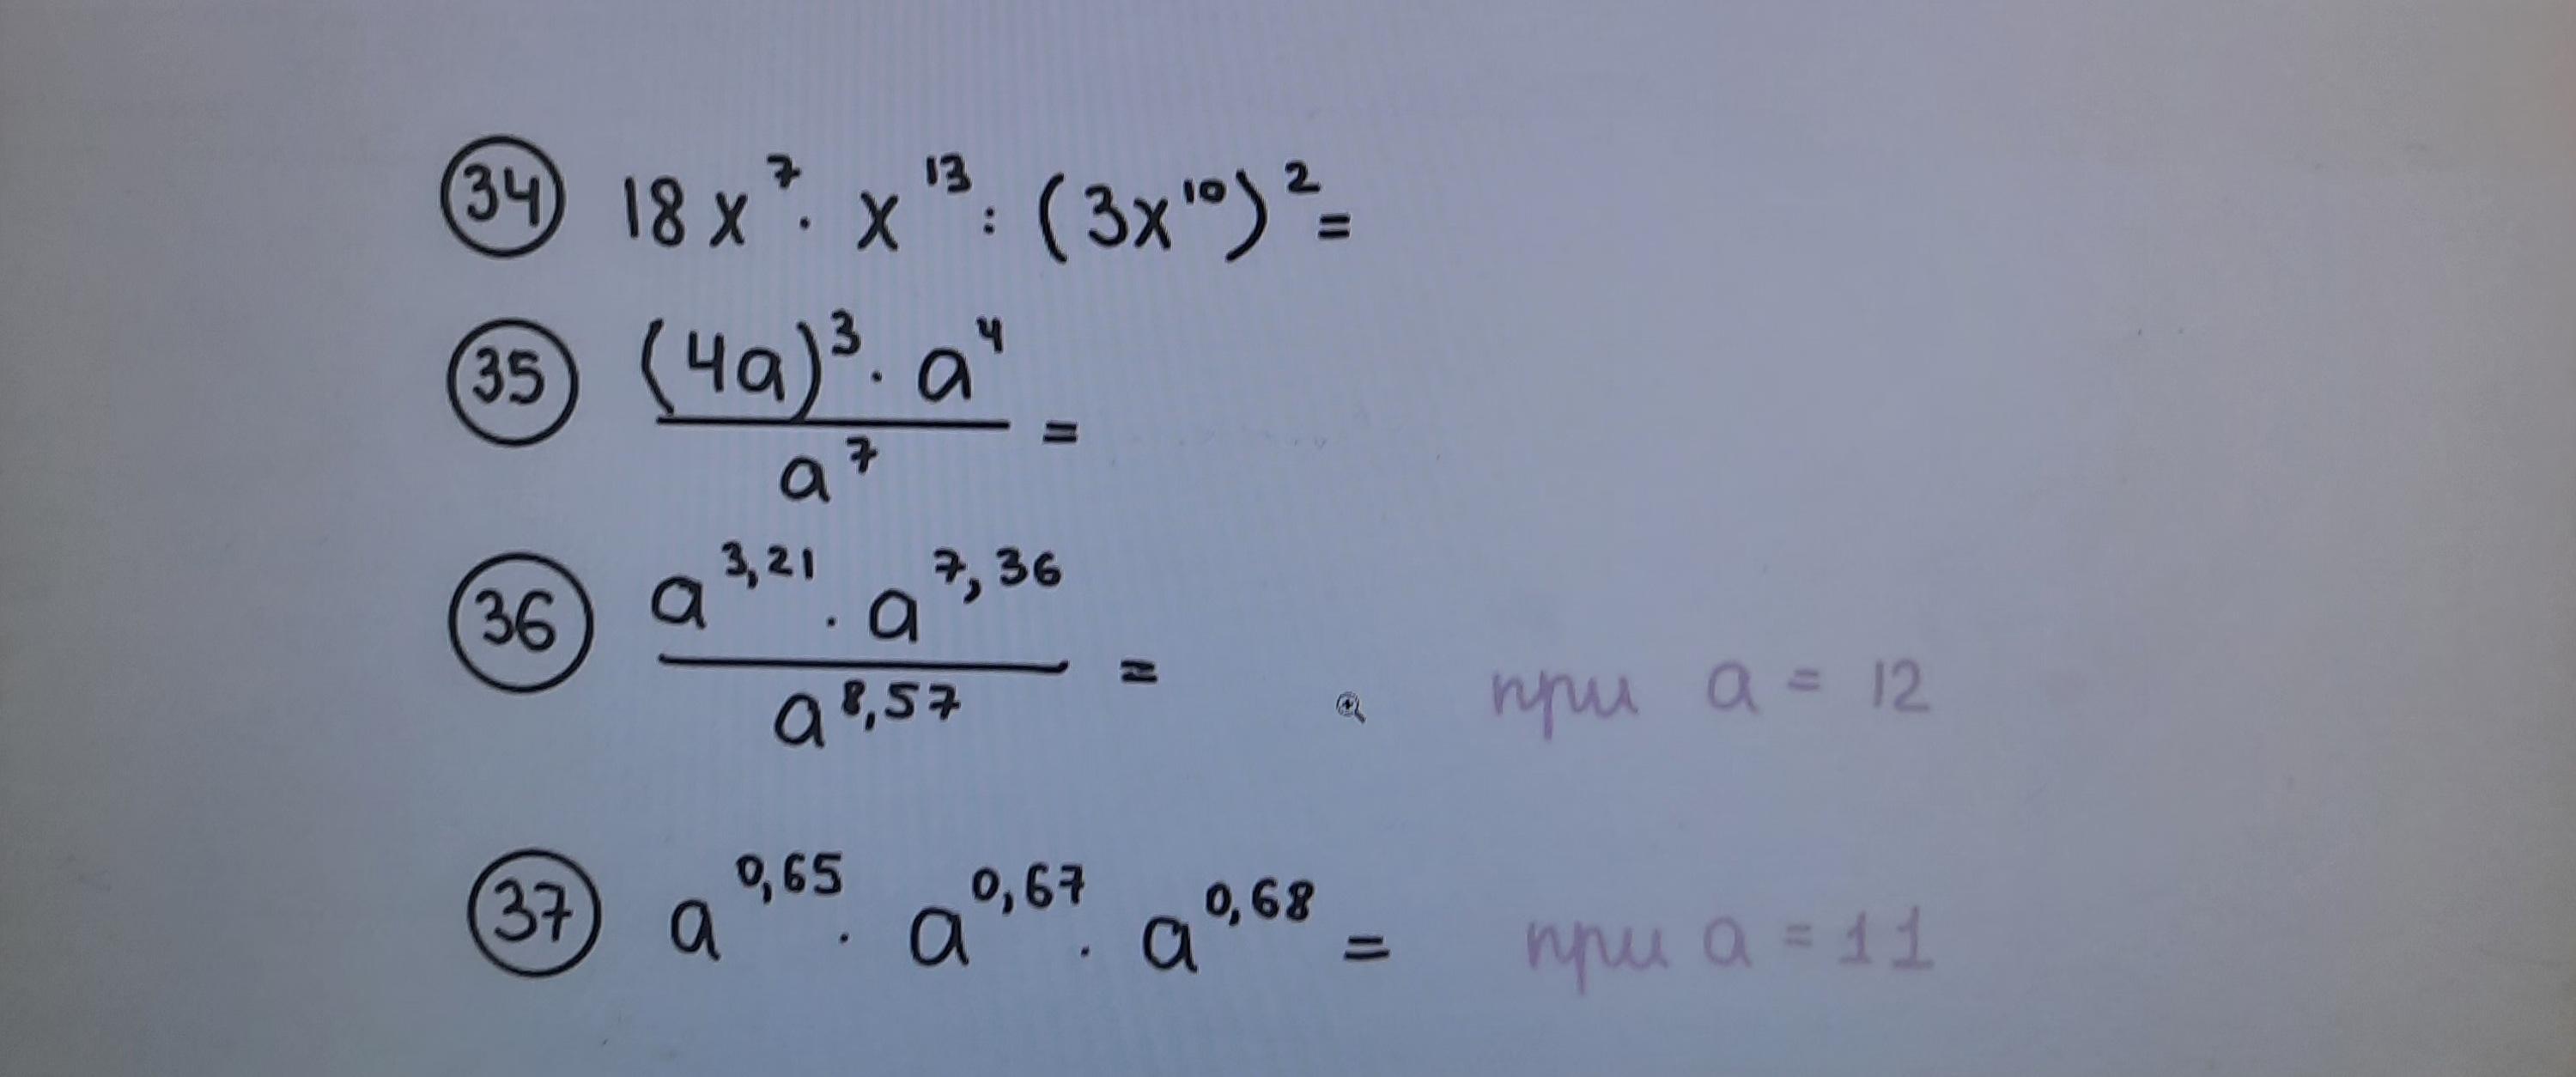 34 18x⁷ · x¹³ : (3x¹⁰)² =
35 (4a)³ · a⁴
a⁷ =
36 a³,²¹ · a⁷,³⁶
a⁸,⁵⁷ = при a = 12
37 a⁰,⁶⁵ · a⁰,⁶⁷ · a⁰,⁶⁸ = при a = 11